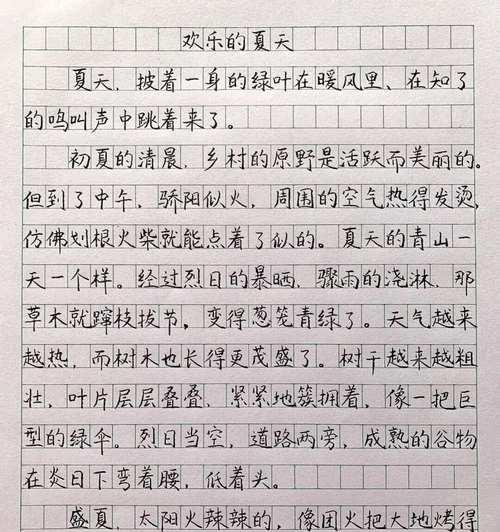 欢乐的夏天
夏天，披着一身的绿叶在暖风里、在知了
的鸣叫声中跳着来了。
初夏的清晨，乡村的原野是活跃而美丽的。
但到了中午，骄阳似火，周围的空气热得发烫，
仿佛划根火柴就能点着了似的。夏天的青山一
天一个样。经过烈日的暴晒，骤雨的浇淋，那
草木就蹿枝拔节，变得葱笼青绿了。天气越来
越热，而树木也长得更茂盛了。树干越来越粗
壮，叶片层层叠叠，紧紧地簇拥着，像一把巨
型的绿伞。烈日当空，道路两旁，成熟的谷物
在炎日下弯着腰，低着头。
盛夏，太阳火辣辣的，像团火把大地烤得